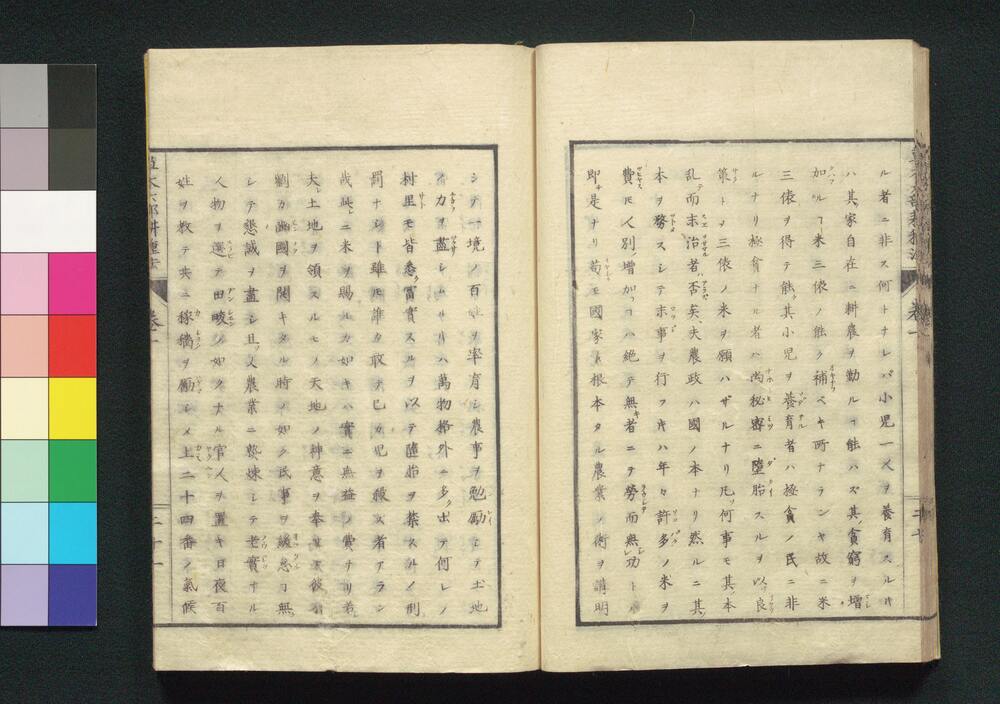 ル者ニ非ス何トナレバ小児一人ヲ養育スルハ
ハ其家自在ニ耕農ヲ勤ルヿ能ハズ其貧窮ヲ増
加ルヿ米三俵ノ能ク補ベキ所ナランヤ故ニ米
三俵ヲ得テ能其小児ヲ養育者ハ極貧ノ民ニ非
ルナリ極貧ナル者ハ尚秘密ニ堕胎スルヲ以良
策トヲ三俵ノ米ヲ願ハザルナリ凡ソ何事モ其本
乱テ而末治者ハ否矣夫農政ハ國ノ本ナリ然ルニ其
本ヲ務スシテ末事ヲ行フ片ハ年々許多ノ米ヲ
費モ人別ノ増加ハ絶テ無キ者ニテ労而無功ト
即チ是ナリ苟モ國家ノ根本タル農業ノ術ヲ講明
シテ一境ノ百姓ヲ率育シ農事ヲ勉励シテ土地
ノ力ヲ盡シムル片ハ萬物格外ニ多ク出テ何レノ
村里モ皆悉ク富實スルヲ以テ堕胎ヲ禁スルノ刑
罰ナシト雖モ誰カ敢テ己カ児ヲ殺ス者アラン
歳々ニ米ヲ賜ルカ如キハ實ニ無益ノ費ナリ若
夫レ土地ヲ領スルモノ天地ノ神意ヲ奉
劉カ幽國ヲ開キタル時ノ如ク民事ヲ緩怠ヿ無
シテ懇誠ヲ盡シ且ツ又農業ニ熟煉シテ老實ナル
人物ヲ選テ田畯ノ如クナル官人ヲ置キ日夜百
姓ヲ教テ共ニ稼穡ヲ励シメ上二十四番ノ氣候